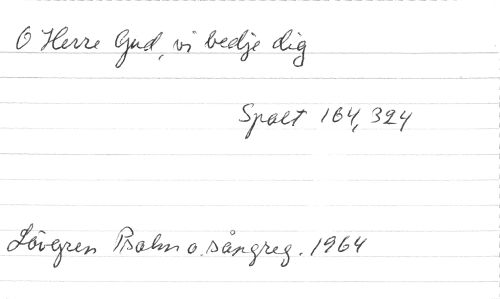 O Herre Gud, vi bedje dig
Spalt 164, 324
Lövgren Psalm o. sångreg. 1964